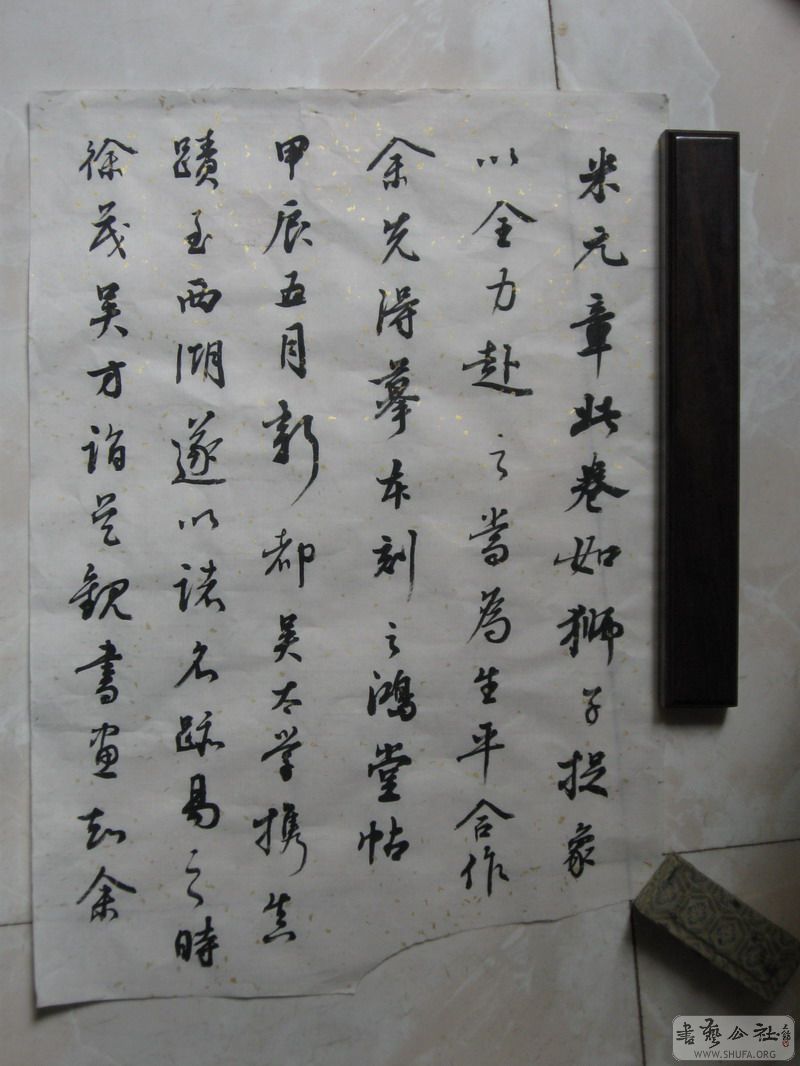 米元章此卷如狮子捉象
以全力赴之当为生平合作
余先得摹本刻之鸿堂帖
甲辰五月新都吴太学携真
蹟至西湖遂以诸名跡易之时
徐茂吴方诣吴观书画知余
書藝公社
WWW.SHUFA.ORG